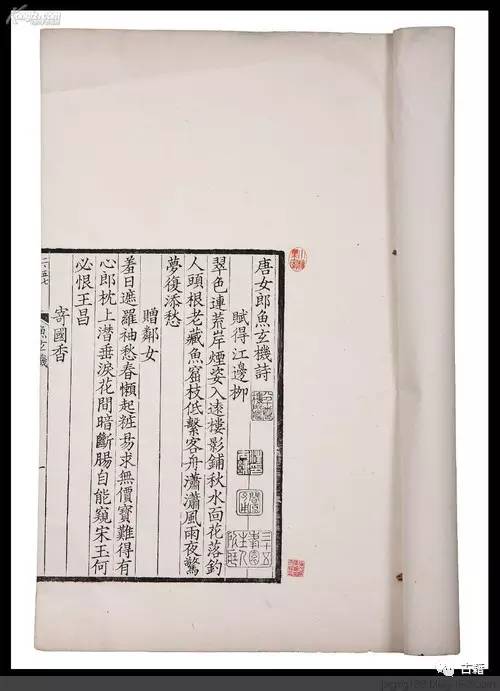 唐女郎魚玄機詩
賦得江邊柳
翠色連荒岸煙姿入遠樓影鋪秋水面花落釣
人頭根老藏魚窟枝低繫客舟瀟瀟風雨夜驚
夢復添愁
贈鄰女
羞日遮羅袖愁春懶起粧易求無價寶難得有
心郎枕上潛垂淚花間暗斷腸自能窺宋玉何
必恨王昌
寄國香
魚玄機
一
古籍